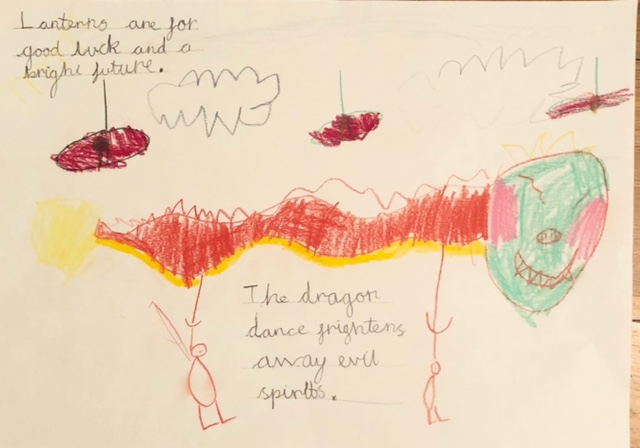 Lanterns are for
good luck and a
bright future.
The dragon
dance frightens
away evil
spirits.